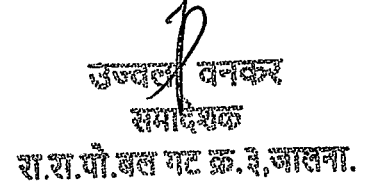 उज्वला वनकर
समादेशक
रा.रा.पो.बल गट क्र.३,जालना.